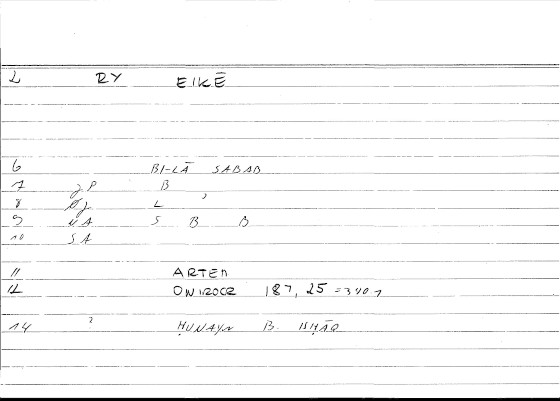 2 RY EIKĒ
6 BI-LĀ SABAB
7 gP B
8 L ʾ
9 NA S B B
10 SA
11 ARTEM
12 ONIROCR 187, 25 = 340 7
14 ? ḤUNAYN B. ISḤĀQ